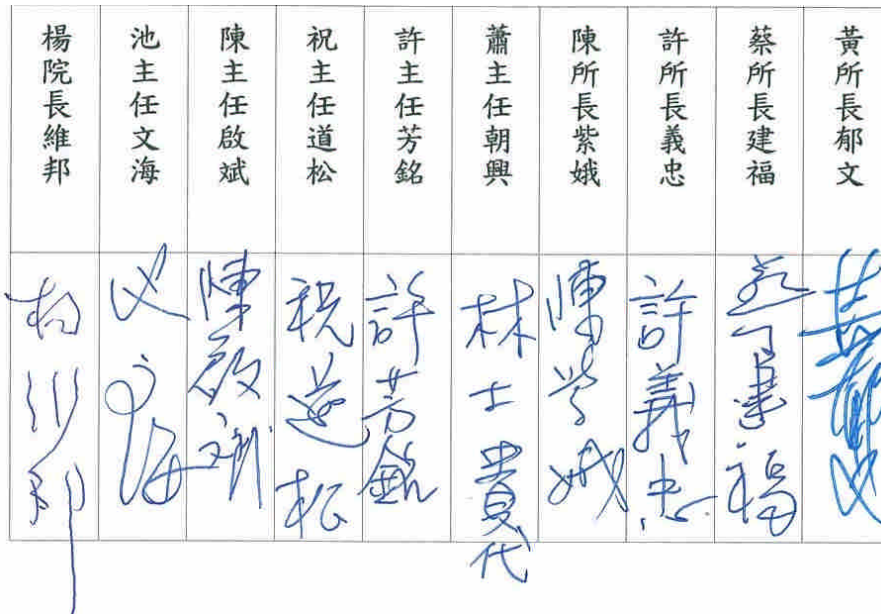 黃所長郁文
蔡所長建福
許所長義忠
陳所長紫娥
蕭主任朝興
許主任芳銘
祝主任道松
陳主任啟斌
池主任文海
楊院長維邦
蔡建福
許義忠
陳紫娥
林士 代
許芳銘
祝道松
陳啟斌
文海